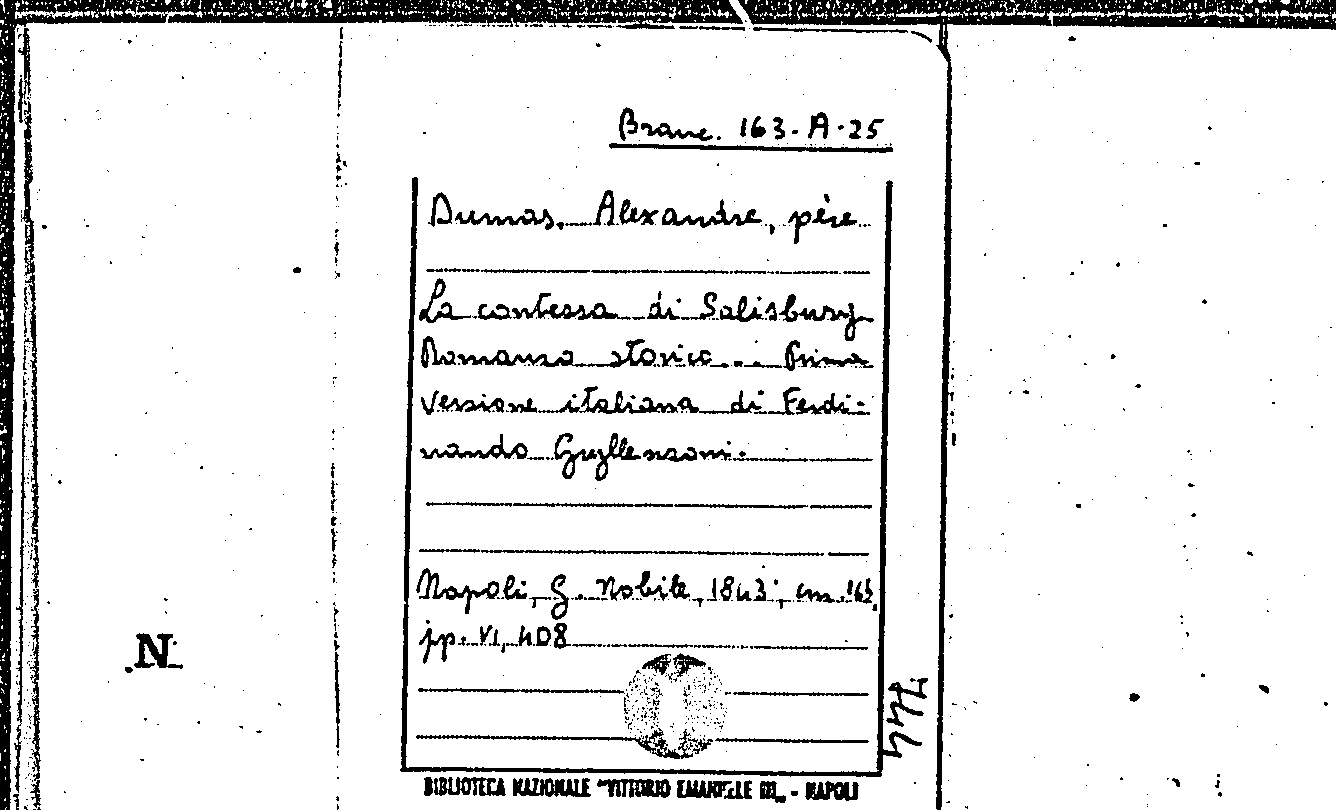 Branc. 163-A-25
Dumas, Alexandre, père
La contessa di Salisbury
Romanzo storico... Prima
versione italiana di Ferdi-
nando Guyllenzoni.
Napoli, G. Nobile, 1843; cm. 16½
pp. VI, 408
N
BIBLIOTECA NAZIONALE "VITTORIO EMANUELE III" - NAPOLI